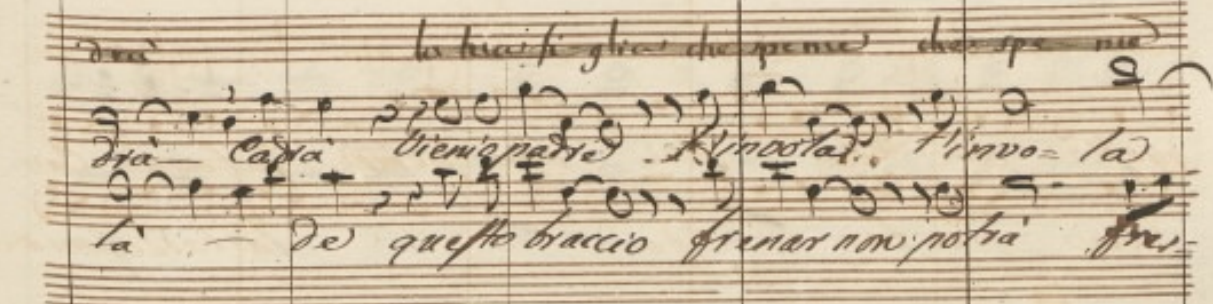 drà la tua figlia che speme che spe me
drà Cadrà Vieni o padre t'invola t'invo= la
là de questo braccio frenar non potrà fre=